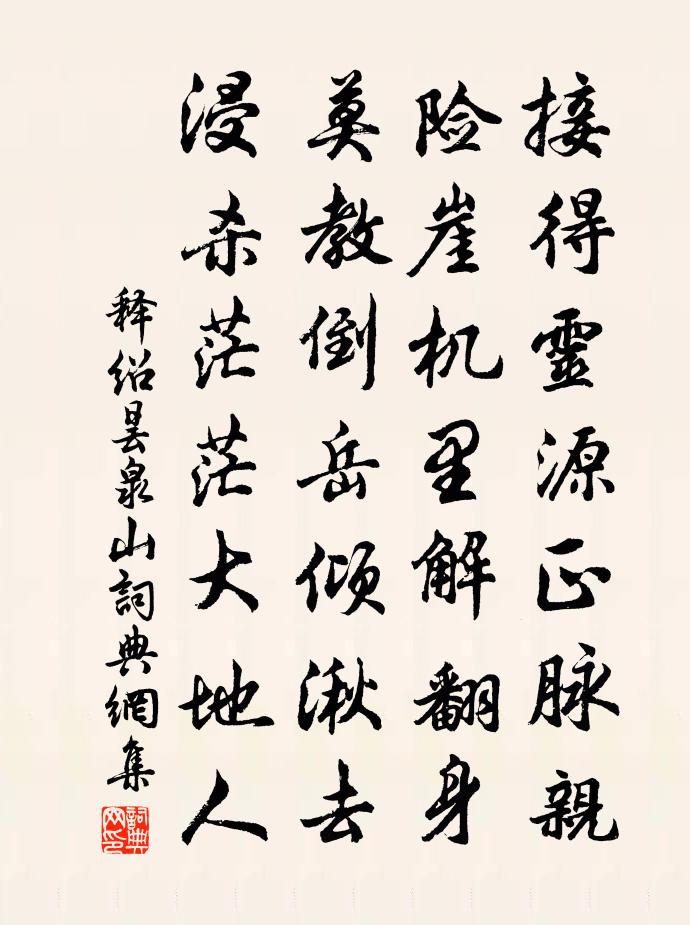 接得靈源正脉親
险崖机里解翻身
莫教倒岳倾湫去
浸杀茫茫大地人
释绍昙泉山詞典網集
詞典网印